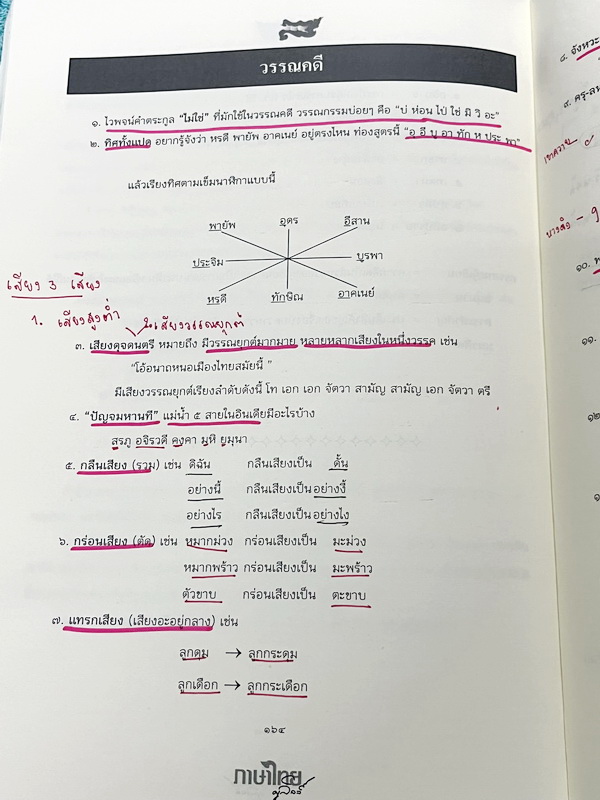 วรรณคดี
๑. ไวพจน์คำตระกูล "ไม่ใช่" ที่มักใช้ในวรรณคดี วรรณกรรมบ่อยๆ คือ "บ่ ห่อน ไป่ ใช่ มิ วิ อะ"
๒. ทิศทั้งแปด อยากรู้จังว่า หรดี พายัพ อาคเนย์ อยู่ตรงไหน ท่องสูตรนี้ "อุ อี บู อา ทัก ห ประ พา"
แล้วเรียงทิศตามเข็มนาฬิกาแบบนี้
พายัพ อุดร อีสาน
ประจิม บูรพา
หรดี ทักษิณ อาคเนย์
เสียง 3 เสียง
1. เสียงสูงต่ำ
เสียงวรรณยุกต์
๓. เสียงดุจดนตรี หมายถึง มีวรรณยุกต์มากมาย หลายหลากเสียงในหนึ่งวรรค เช่น
"โอ้อนาถหนอเมืองไทยสมัยนี้ "
มีเสียงวรรณยุกต์เรียงลำดับดังนี้ โท เอก เอก จัตวา สามัญ สามัญ เอก จัตวา ตรี
๔. "ปัญจมหานที" แม่น้ำ ๕ สายในอินเดียมีอะไรบ้าง
สรภู อจิรวดี คงคา มหิ ยมุนา
๕. กลืนเสียง (รวม) เช่น ดิฉัน กลืนเสียงเป็น ดั้น
อย่างนี้ กลืนเสียงเป็น อย่างงี้
อย่างไร กลืนเสียงเป็น อย่างไง
๖. กร่อนเสียง (ตัด) เช่น หมากม่วง กร่อนเสียงเป็น มะม่วง
หมากพร้าว กร่อนเสียงเป็น มะพร้าว
ตัวขาบ กร่อนเสียงเป็น ตะขาบ
๗. แทรกเสียง (เสียงอะอยู่กลาง) เช่น
ลูกดุม → ลูกกระดุม
ลูกเดือก → ลูกกระเดือก
๑๖๔
ภาษาไทย
๘. จังหวะ
๑๐.
๑๑.